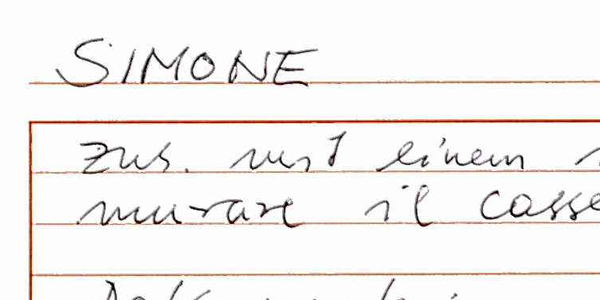 SIMONE
Zus. mit einem
murare il casse